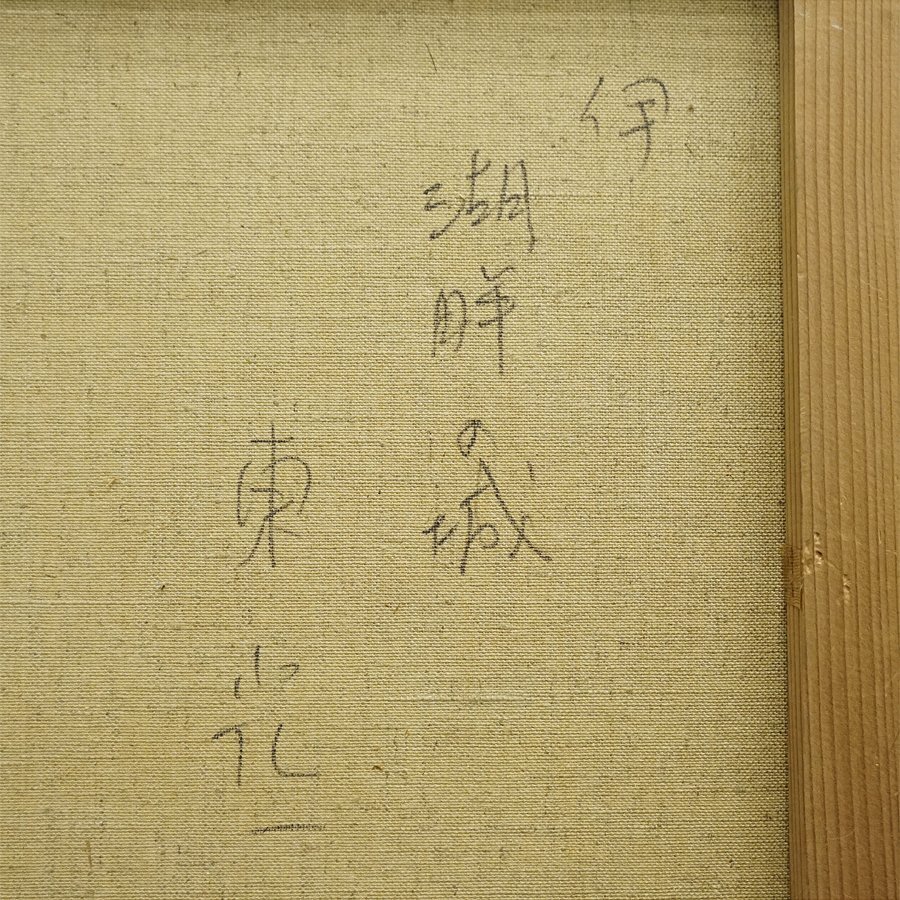 伊
湖畔の城
東光一